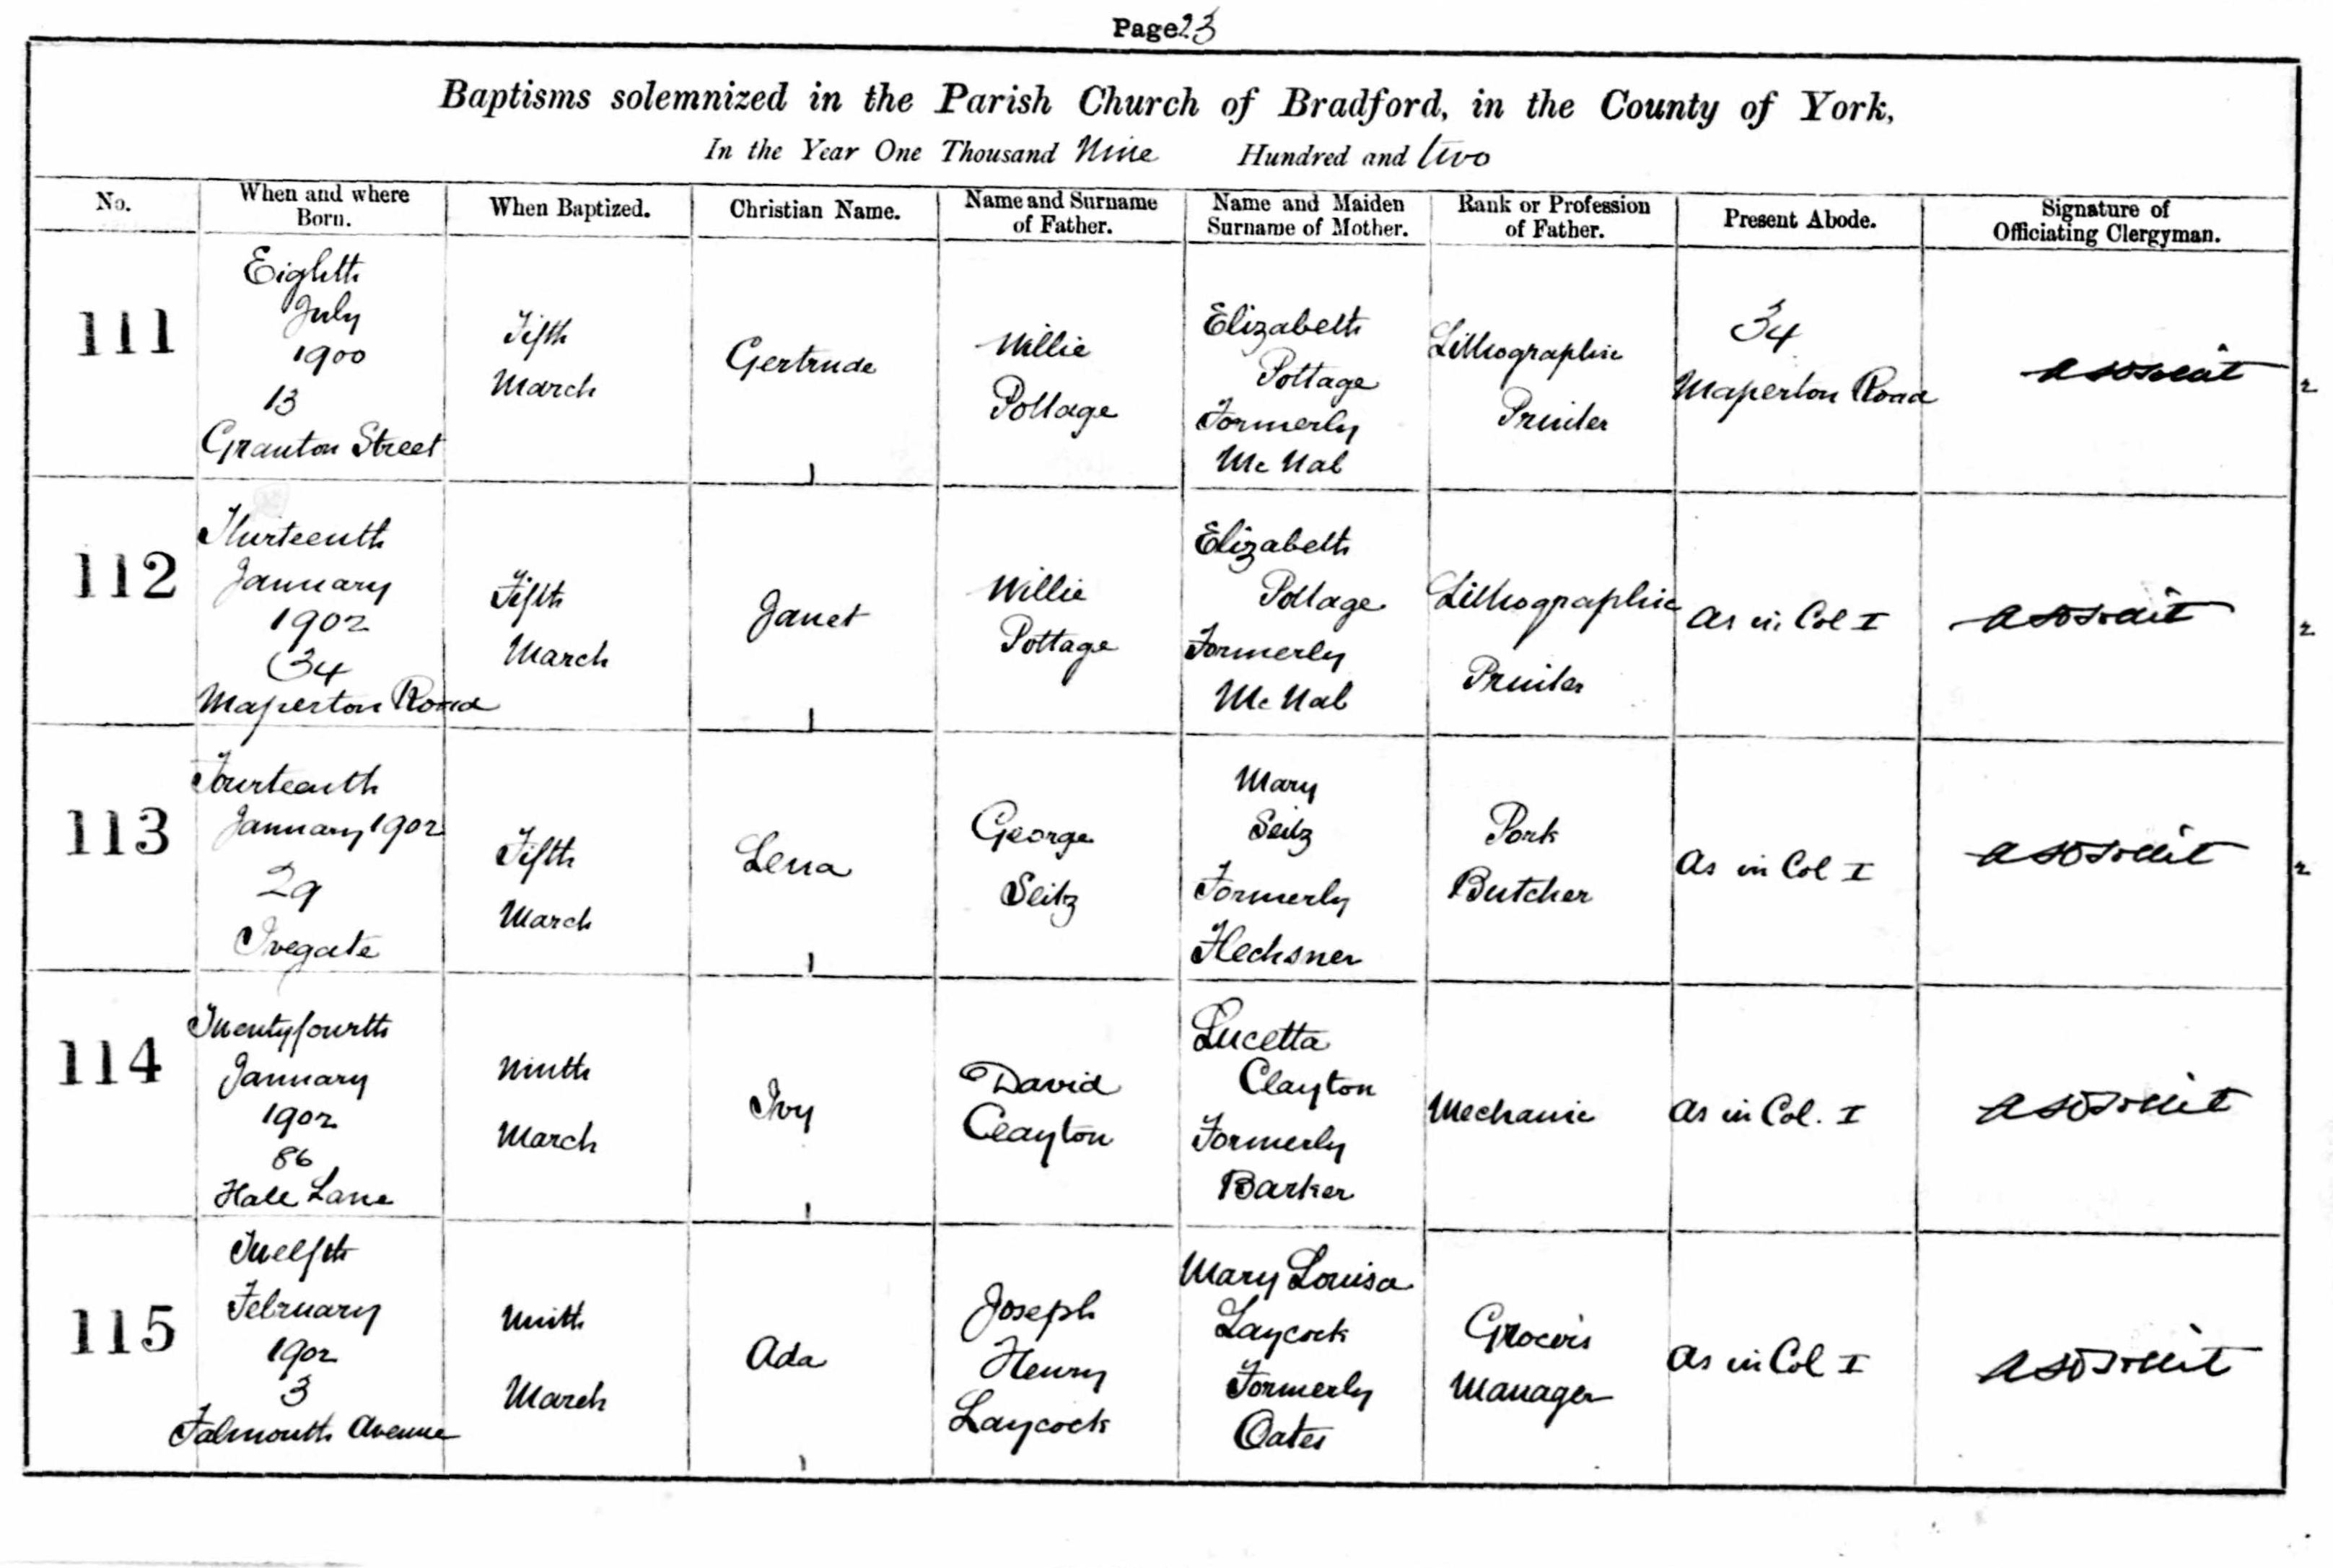 Page 23
Baptisms solemnized in the Parish Church of Bradford, in the County of York,
In the Year One Thousand Nine Hundred and two
No.
When and where
Born.
When Baptized.
Christian Name.
Name and Surname
of Father.
Name and Maiden
Surname of Mother.
Rank or Profession
of Father.
Present Abode.
Signature of
Officiating Clergyman.
111
Eighth
July
1900
13
Granton Street
Fifth
March
Gertrude
Willie
Pottage
Elizabeth
Pottage
Formerly
McNab
Lithographic
Printer
34
Maperton Road
112
Thirteenth
January
1902
34
Maperton Road
Fifth
March
Janet
Willie
Pottage
Elizabeth
Pottage
Formerly
McNab
Lithographic
Printer
As in Col I
113
Fourteenth
January 1902
29
Ivegate
Fifth
March
Lena
George
Seitz
Mary
Seitz
Formerly
Hechsner
Pork
Butcher
As in Col I
114
Twentyfourth
January
1902
86
Hall Lane
Ninth
March
Ivy
David
Clayton
Lucetta
Clayton
Formerly
Barker
Mechanic
As in Col. I
115
Twelfth
February
1902
3
Falmouth Avenue
Ninth
March
Ada
Joseph
Henry
Laycock
Mary Louisa
Laycock
Formerly
Oates
Grocers
Manager
As in Col I